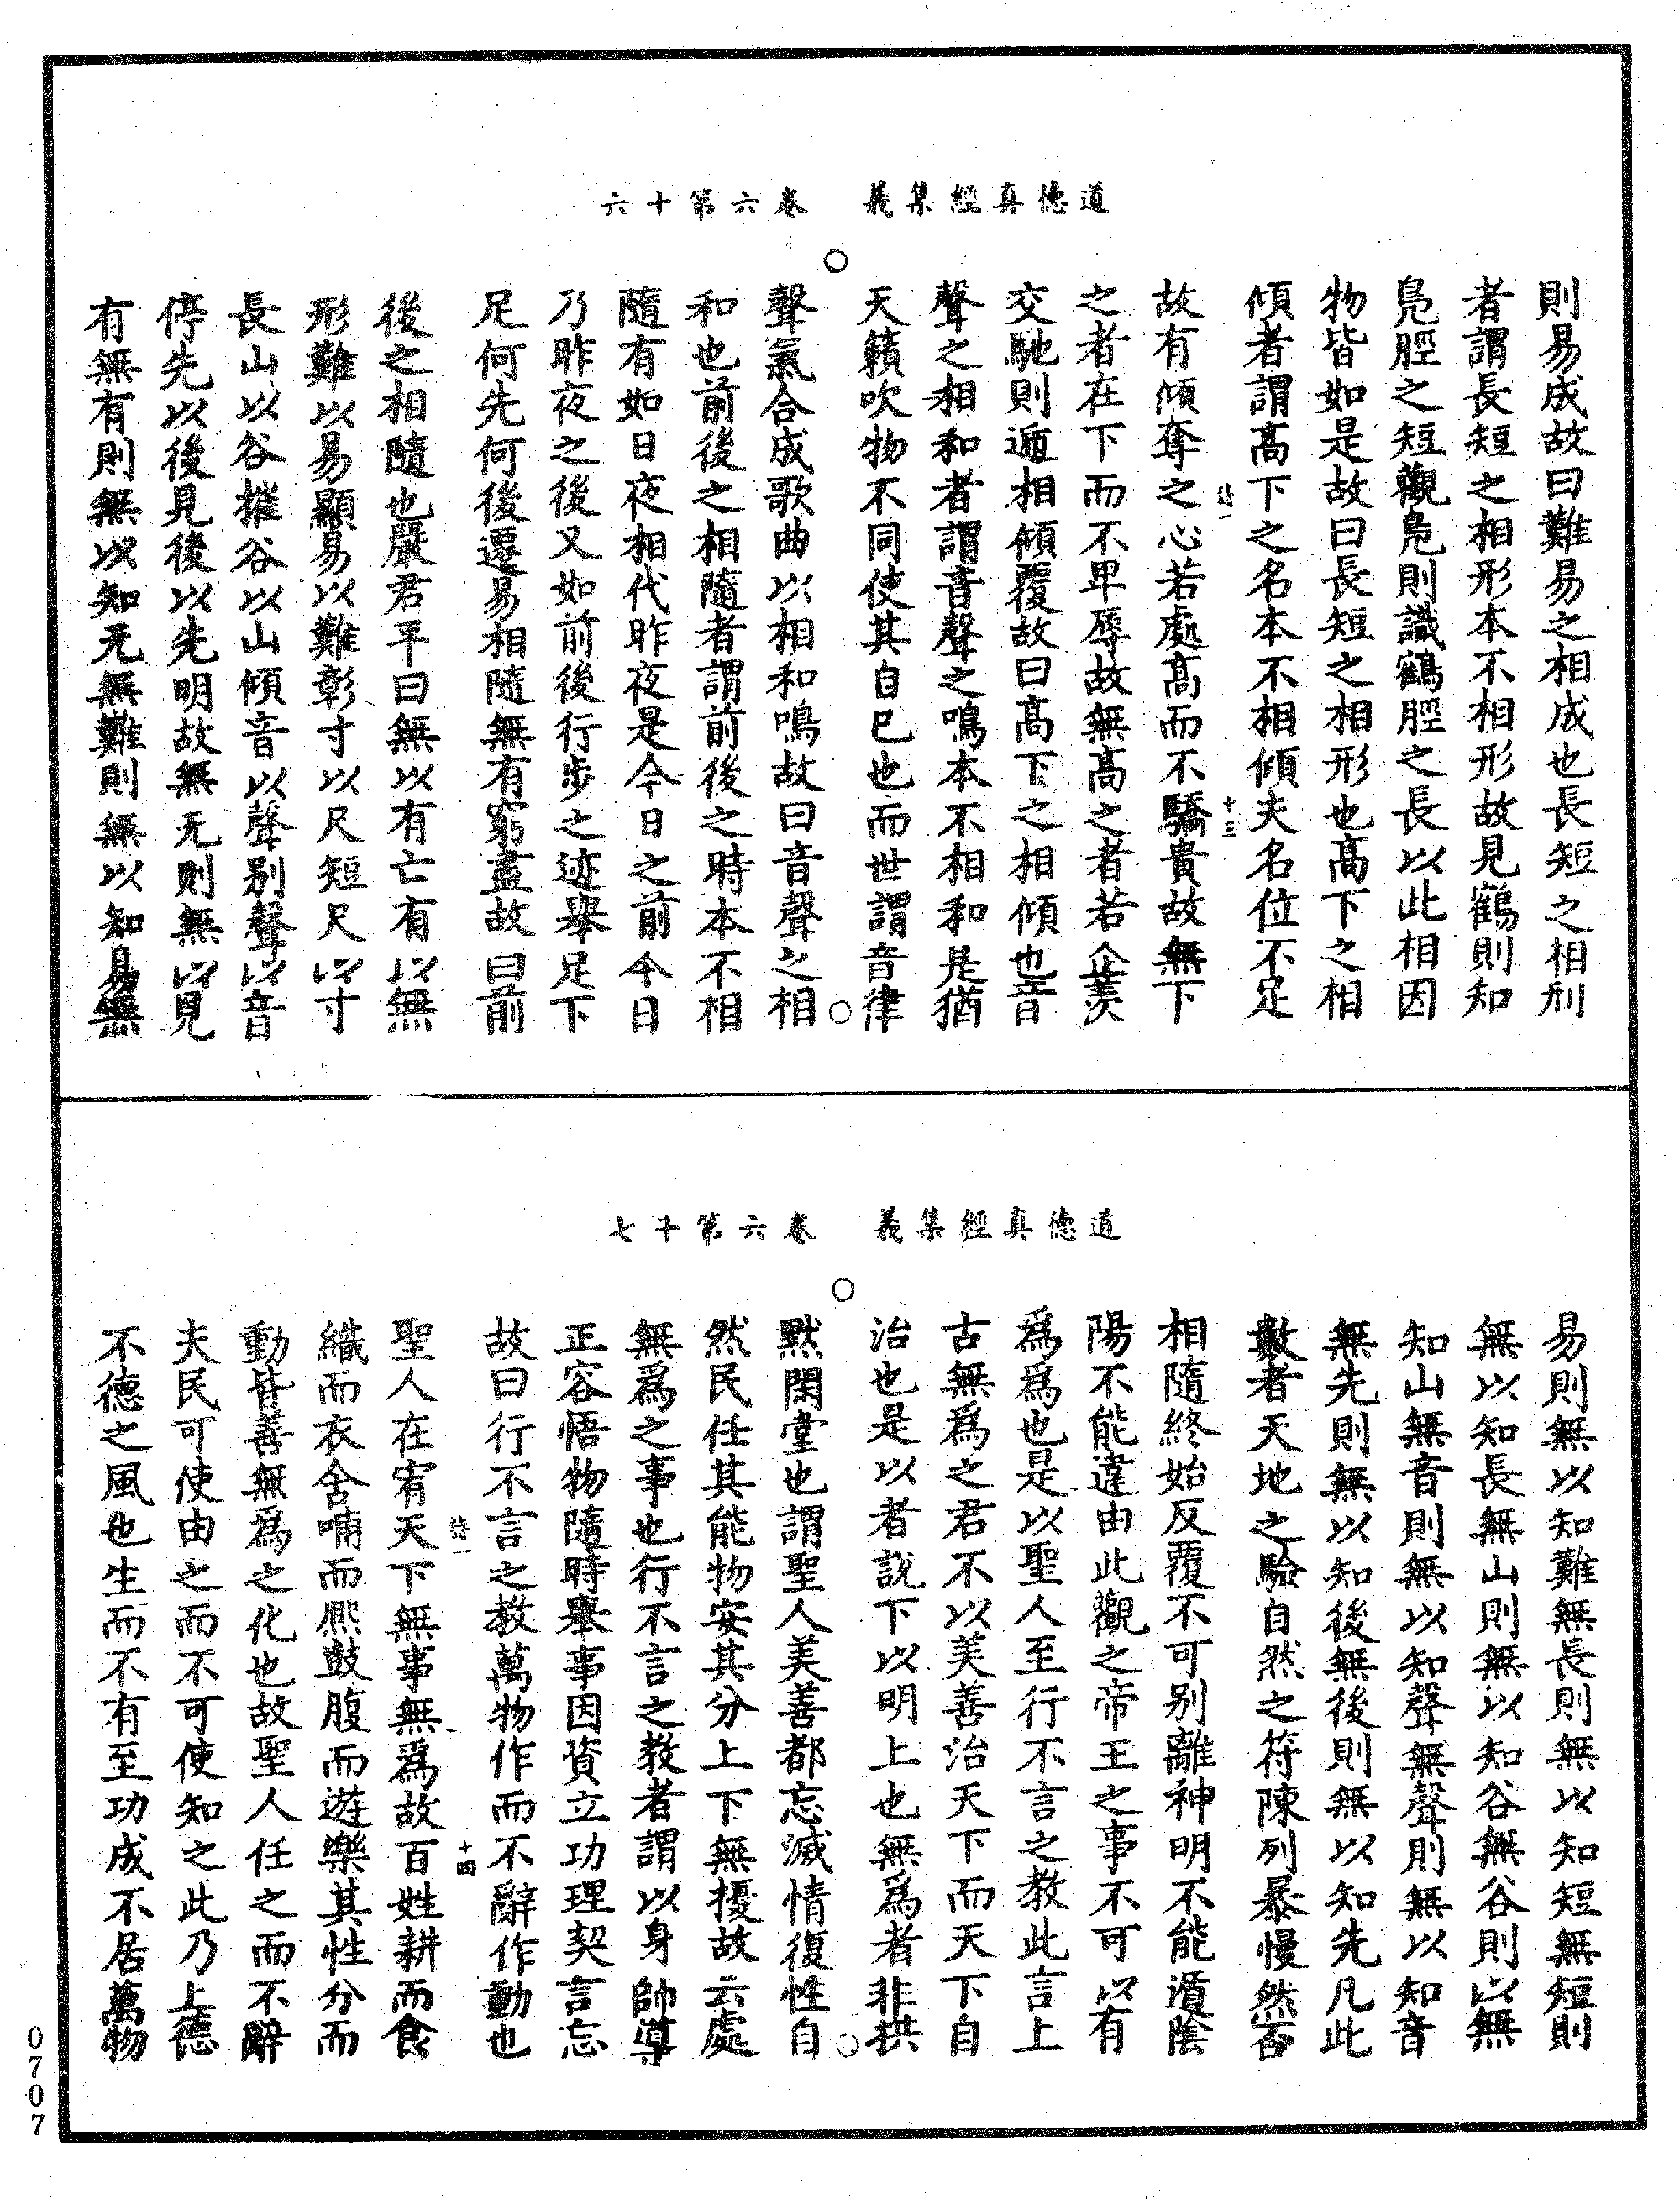 道德真經集義　卷六第十六
則易成故曰難易之相成也長短之相刑
者謂長短之相形本不相形故見鶴則知
鳧脛之短觀鳧則識鶴脛之長以此相因
物皆如是故曰長短之相形也高下之相
傾者謂高下之名本不相傾夫名位不足
詩一　十三
故有傾奪之心若處高而不驕貴故無下
之者在下而不卑辱故無高之者若企羨
交馳則遞相傾覆故曰高下之相傾也音
聲之相和者謂音聲之鳴本不相和是猶
天籟吹物不同使其自已也而世謂音律
聲氣合成歌曲以相和鳴故曰音聲之相
和也前後之相隨者謂前後之時本不相
隨有如日夜相代昨夜是今日之前今日
乃昨夜之後又如前後行步之迹舉足下
足何先何後遷易相隨無有窮盡故曰前
後之相隨也嚴君平曰無以有亡有以無
形難以易顯易以難彰寸以尺短尺以寸
長山以谷摧谷以山傾音以聲別聲以音
停先以後見後以先明故無无則無以見
有無有則無以知无無難則無以知易無
道德真經集義　卷六第十七
易則無以知難無長則無以知短無短則
無以知長無山則無以知谷無谷則以無
知山無音則無以知聲無聲則無以知音
無先則無以知後無後則無以知先凡此
數者天地之驗自然之符陳列暴慢然否
相隨終始反覆不可別離神明不能遁陰
陽不能違由此觀之帝王之事不可以有
爲爲也是以聖人至行不言之教此言上
古無爲之君不以美善治天下而天下自
治也是以者說下以明上也無爲者非拱
默閑堂也謂聖人美善都忘滅情復性自
然民任其能物安其分上下無擾故云處
無爲之事也行不言之教者謂以身帥導
正容悟物隨時舉事因資立功理契言忘
故曰行不言之教萬物作而不辭作動也
詩一　十四
聖人在宥天下無事無爲故百姓耕而食
織而衣含哺而熙鼓腹而遊樂其性分而
動皆善無爲之化也故聖人任之而不辭
夫民可使由之而不可使知之此乃上德
不德之風也生而不有至功成不居萬物
0707